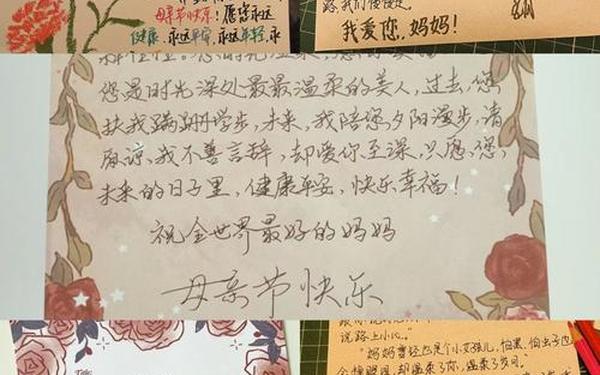 母亲节快乐！愿您永远
健康、永远平安、永远年轻、永
路，我们慢慢走。
我爱你，妈妈！
您是时光深处最最温柔的美人，过去，您
扶我蹒跚学步，未来，我陪您夕阳漫步，请
原谅，我不善言辞，却爱你至深，只愿，您，
未来的日子里，健康平安，快乐幸福！
祝全世界最好的妈妈
母亲节快乐
说路上小心。"
"妈妈曾经也是个小女孩儿，怕黑、怕虫子也
却温柔了你，温柔了岁月。"